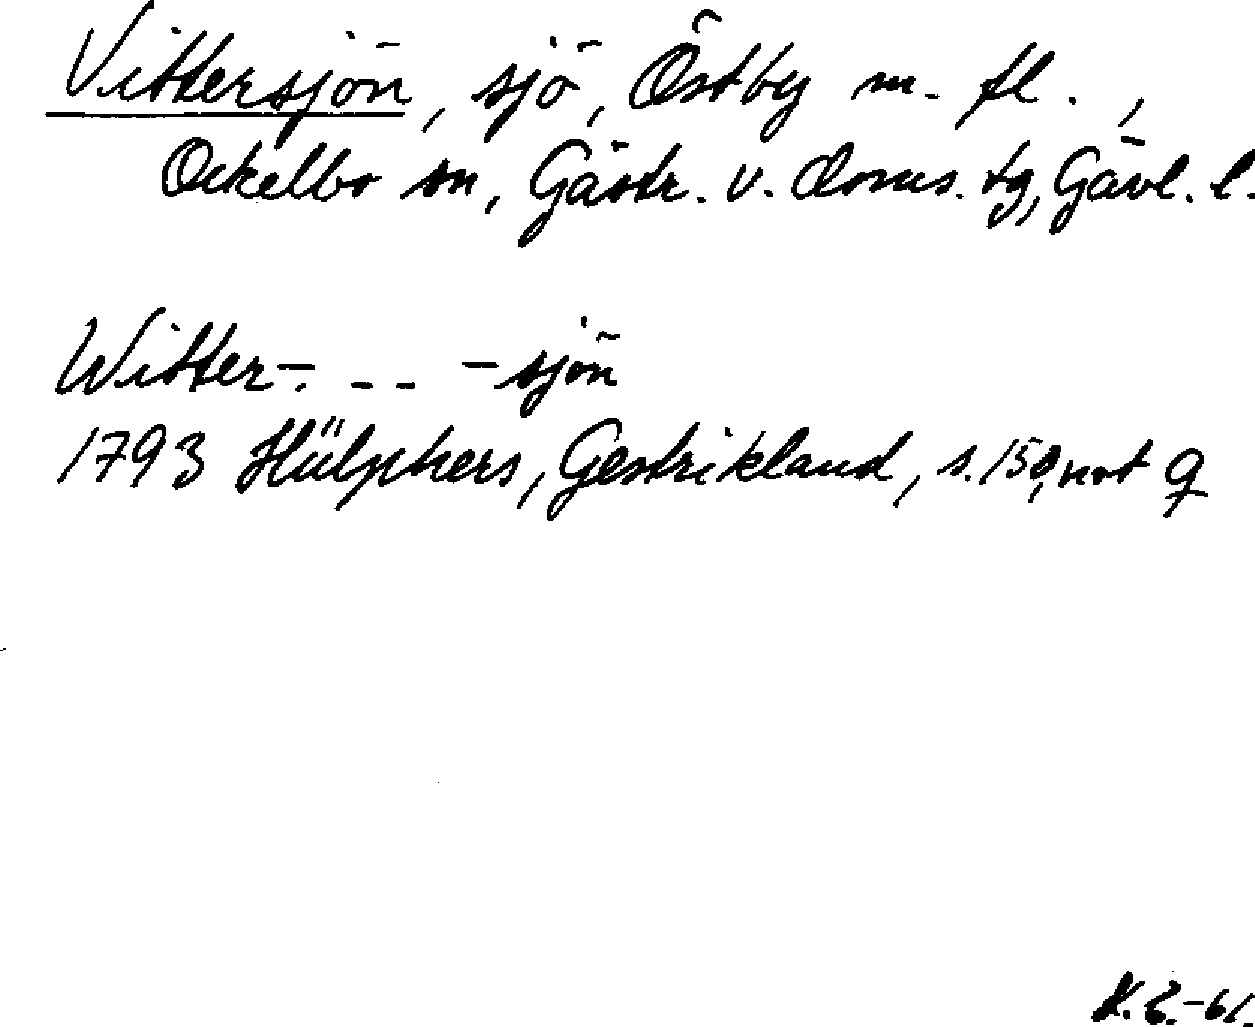 Vittersjön, sjö, Östby m. fl.,
Ockelbo sn, Gästr. v. doms. tg, Gävl. l.
Witter-. -- -sjön
1793 Hülphers, Gestrikland, s. 150, not q